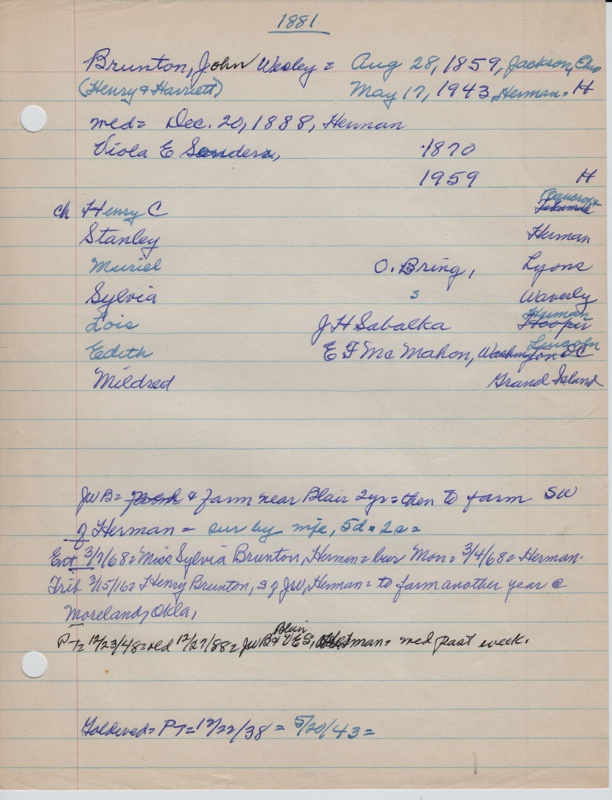 1881
Brunton, John Wesley = Aug 28, 1859, Jackson, Ohio
(Henry & Harriett) May 17, 1943, Herman = H
med = Dec. 20, 1888, Herman
Viola E Sanders, 1870
1959 H
ch Henry C Bancroft Tekamah
Stanley Herman
Muriel O. Bring, Lyons
Sylvia s Waverly
Lois J H Sabalka Herman Hooper
Edith E F McMahon, Washington DC Lincoln
Mildred Grand Island
JWB = & farm near Blair 2yr = then to farm SW
of Herman = sur by wife, 5d = 2s =
Ent 3/7/68 = Miss Sylvia Brunton, Herman = bur Mon = 3/4/68 = Herman.
Trib 3/15/16 = Henry Brunton, s of JW, Herman = to farm another year @
Moreland, Okla,
PT = 12/23/48 = dd 12/27/88 = JWB & VES, Blair Herman = med past week.
Goldwed = PT = 12/22/38 = 5/20/43 =